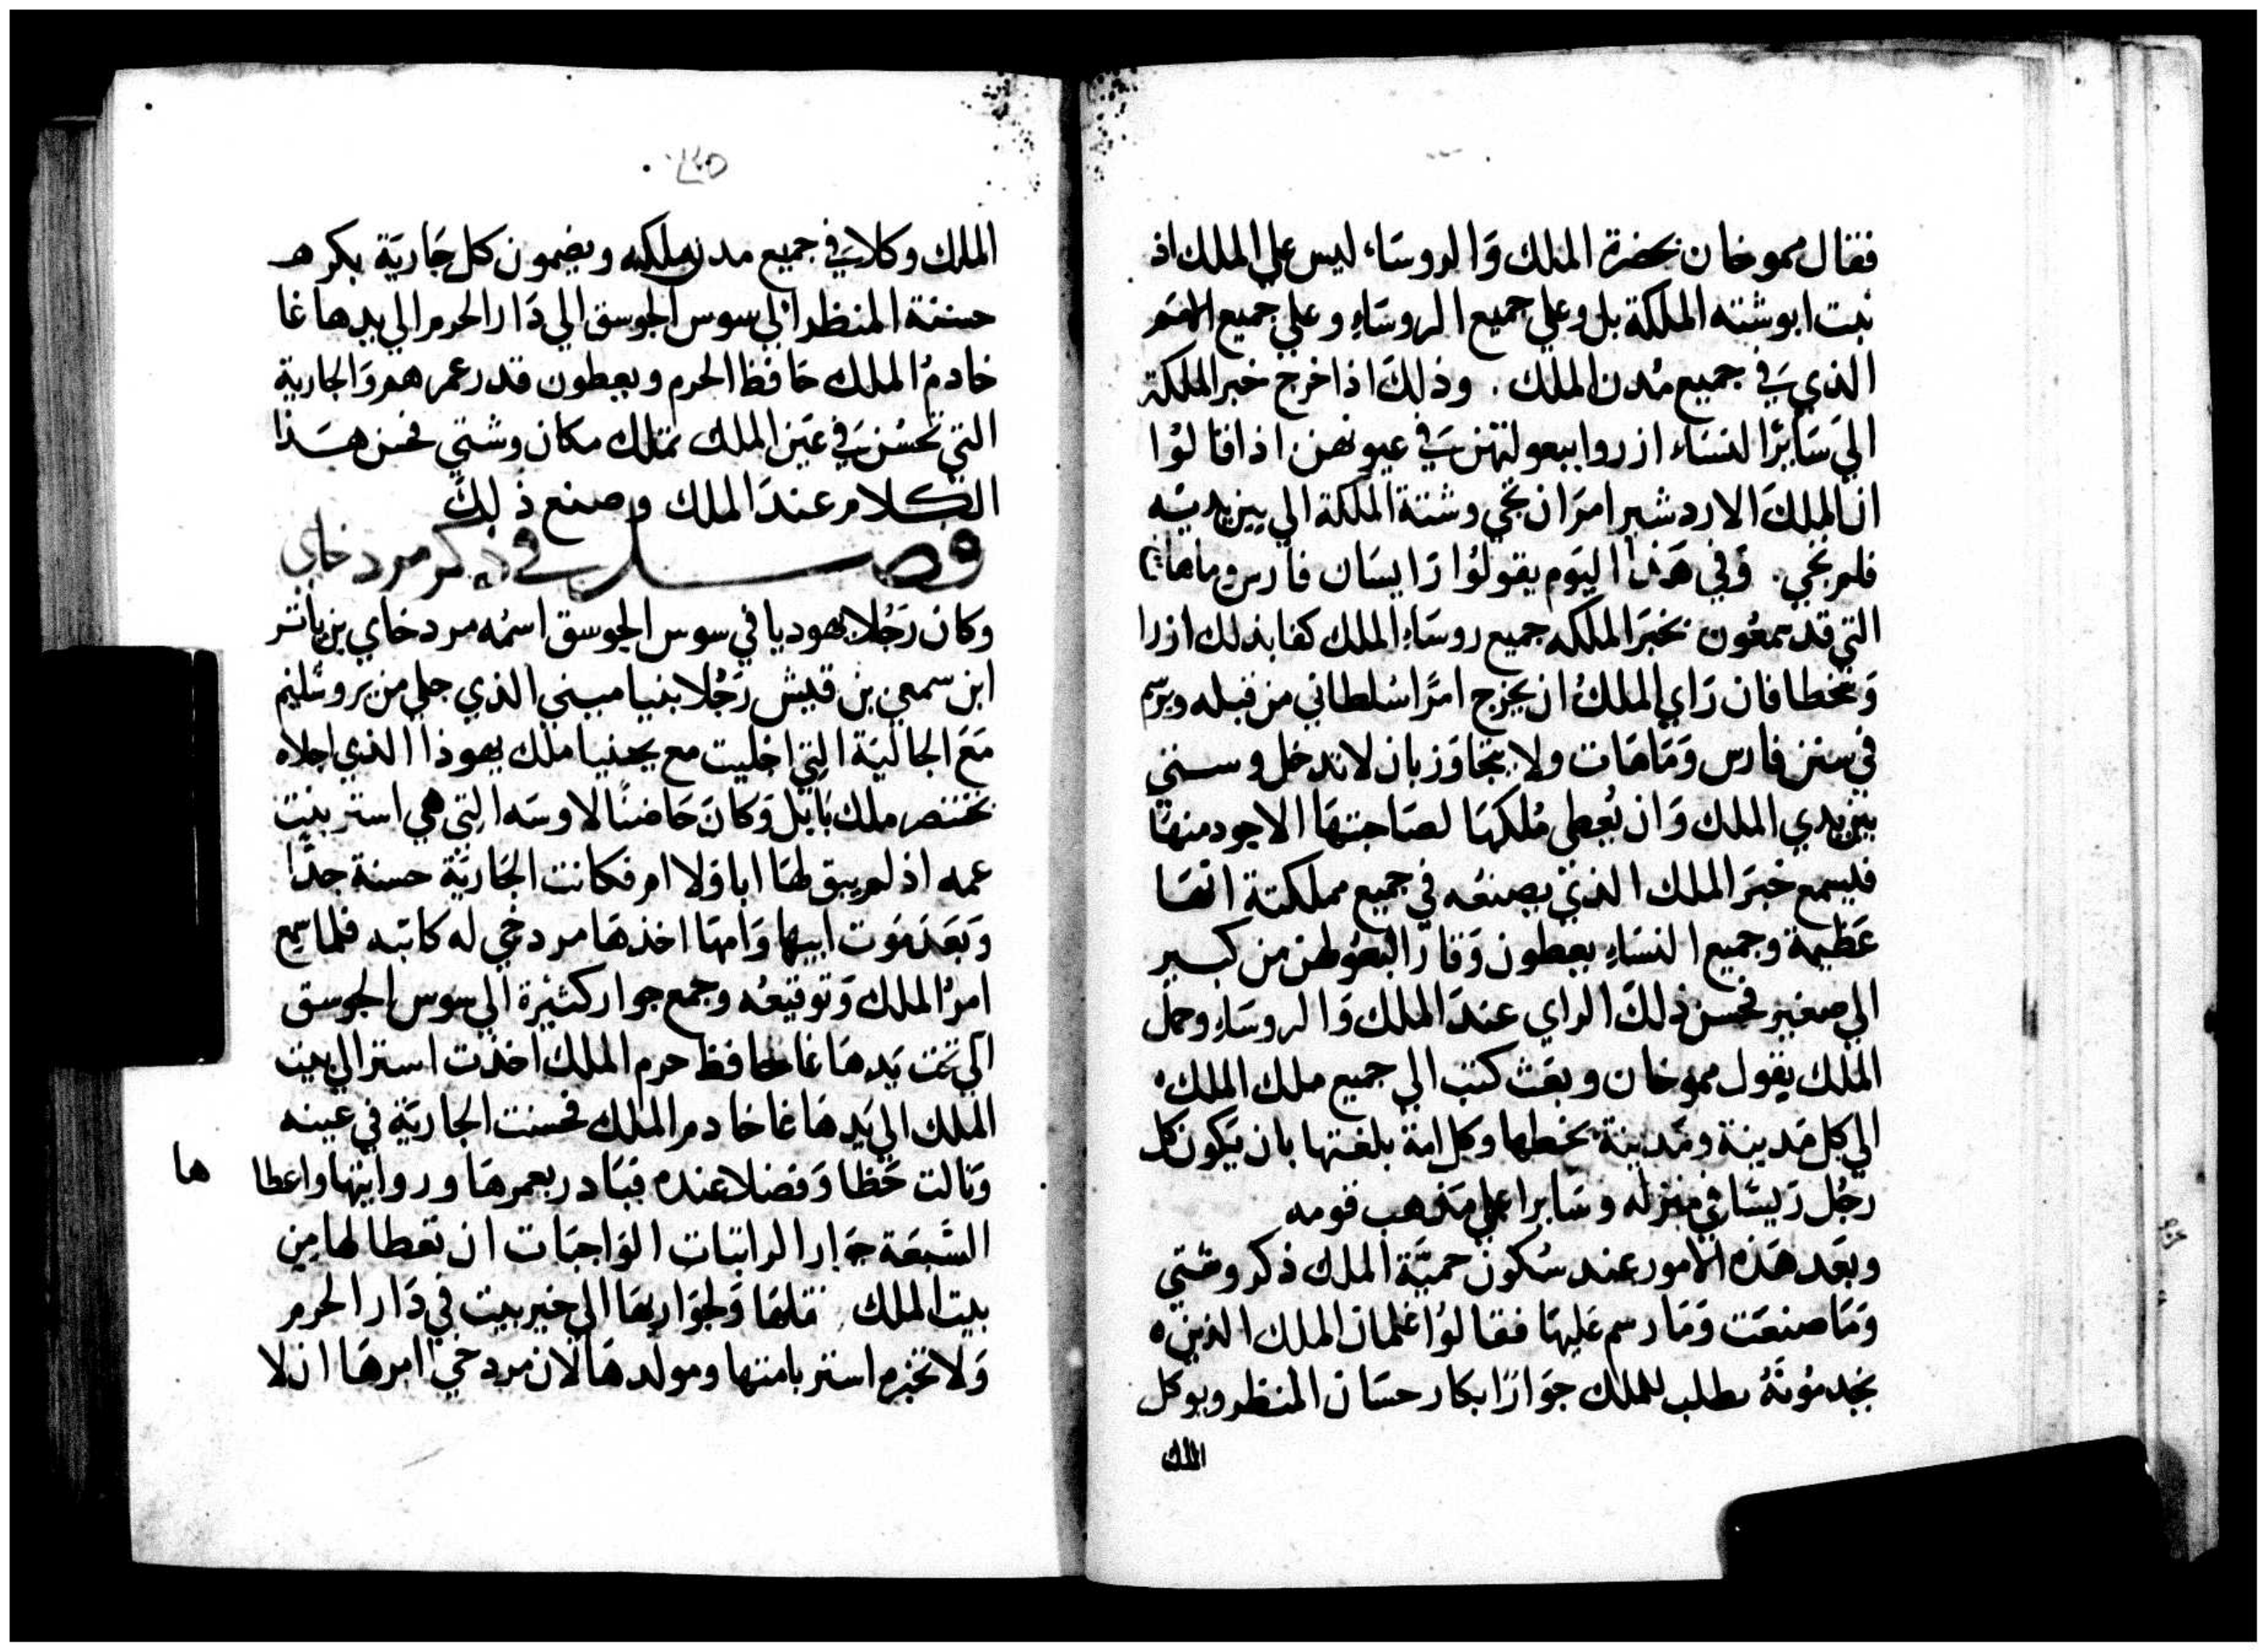 فقال مموخان بحضرة الملك وَالروسَاء ليس علي الملك اذ
نبت ابوشته الملكة بل وعلي جميع الروسَاء وعلي جميع الامَم
الذي في جميع مُدن الملك. وذلكَ اذا خرج خبر الملكة
اليَ سَايرَ النسَاء ازروا ببعولتهن في عيونهن اذا قالوُا
ان الملكَ الاردشير امَر ان تجي وشتة الملكة الي بين يديَه
فلم تجي. وَفي هَذا اليَوم يقولوُا رَايسَات فارس وماهات
التي قد سمعُون بخبرَ الملكه جميع روسَاءِ الملك كفا بذلك ازرا
وَسخطا فان رَاي الملكُ ان يخرج امرًا سُلطاني من قبله ويرَسم
في سنن فارس وَمَاهَات ولا يتجاوَز بان لا تدخل وستي
بين يدي الملك وَان يُعطي مُلكهَا لصَاحبتهَا الاجود منهَا
فليسمع خبَر الملك الذي يصنعُه في جميع مملكتة انهَا
عَظيمة وجميع النسَاءِ يعطون وَقارًا لبعُولهن من كبير
الي صغير فحسن ذلكَ الراي عندَ الملك وَالروسَاءِ وعمل
الملك بقول مموخان وبعَث كتب الي جميع ملك الملك
الي كل مَدينة ومَدينة بخطها وكل امة بلغتها بان يَكون كل
رجُل رَيسًا في منزله وسَايرا علي مَذهب قومه
وبعَد هَذه الامور عند سُكون حميَّة الملك ذكر وشتي
وَمَا صنعَت وَمَا رسم عَليهَا فقالوُا غلمان الملك الذين
يخدمُونَهُ يطلب للملك جوَارًا ابكار حسَان المنظر ويوكل
الملك
الملك وكلاءَ في جميع مدن ملكه ويضمون كل جَاريَة بكر هـ
حسنة المنظر الي سوس الجوسق الي دَار الحرم الي يد هاغا
خادمُ الملك حَافظ الحرم ويعطون قدر عمرهم وَالجارية
التي تحسُن في عَين الملك تملك مكان وشتي فحسن هَذا
الكلام عندَ الملك وصنع ذلك
فصل في ذكر مردخاي
وَكان رَجُلا يهوديا في سوس الجوسق اسمُه مردخاي بن ياتر
ابن سمعي بن قيش رَجُلا بنيامبني الذي جلي من يروشليم
مَعَ الجاليَة التي اجليت مع يحنيا ملك يهوذا الذي اجلاه
بختنصر ملك بَابل وَكانَ حَاضنًا لاوسَه التي هي استر بنت
عمه اذ لم يبق لهَا ابا وَلا ام فكانت الجَاريَة حسنة جدًا
وَبَعَد مَوت ابيها وَامهَا اخذهَا مردخي له كابنه فلما سمع
امرُ الملك وَتوقيعُه وجمع جوار كثيَرة الي سوس الجوسق
الي تحت يَد هَاغا حافظ حرم الملك اخذت استر الي بيت
الملك الي يَد هَاغا خادم الملك فحسنت الجاريَة في عينه
وَنالت حَظا وَفضلا عنده فبَادر بعمرهَا ورواتبها واعطاها
السَّبعَة جوَار الراتبات الوَاجبَات ان تعَطا لها من
بيت الملك. نقلهَا وَلجوَاريهَا الي خير بيت في دَار الحرم
وَلا تخبر استر بامتها ومولدهَا لان مردخي امرهَا ان لا